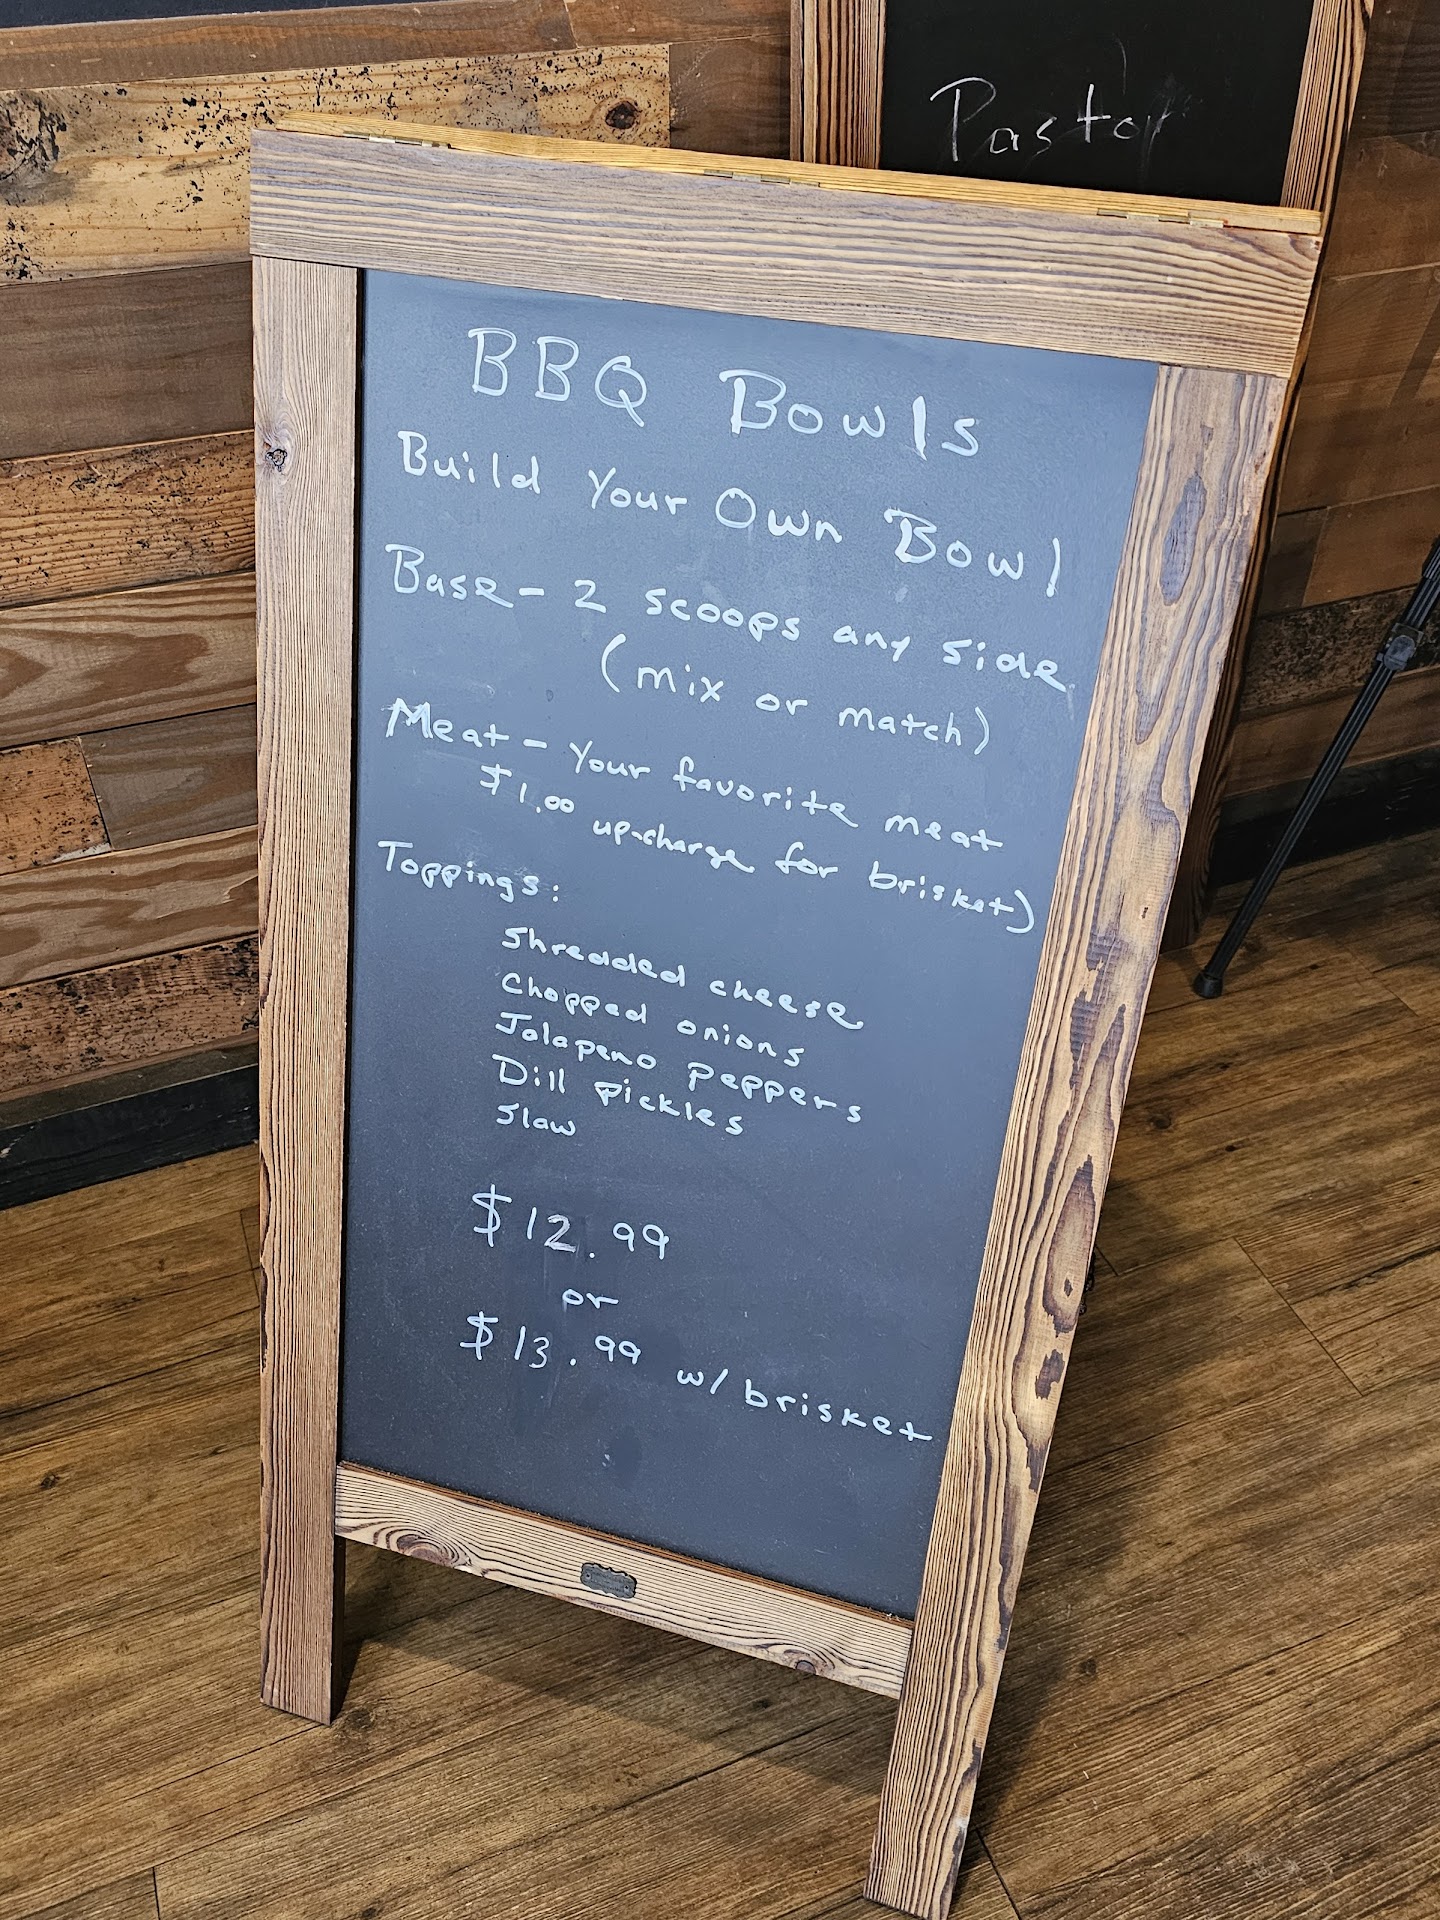 Pastor
BBQ Bowls
Build Your Own Bowl
Base - 2 scoops any side
(mix or match)
Meat - Your favorite meat
$1.00 up-charge for brisket)
Toppings:
Shredded cheese
Chopped onions
Jalapeno peppers
Dill pickles
Slaw
$12.99
or
$13.99 w/brisket